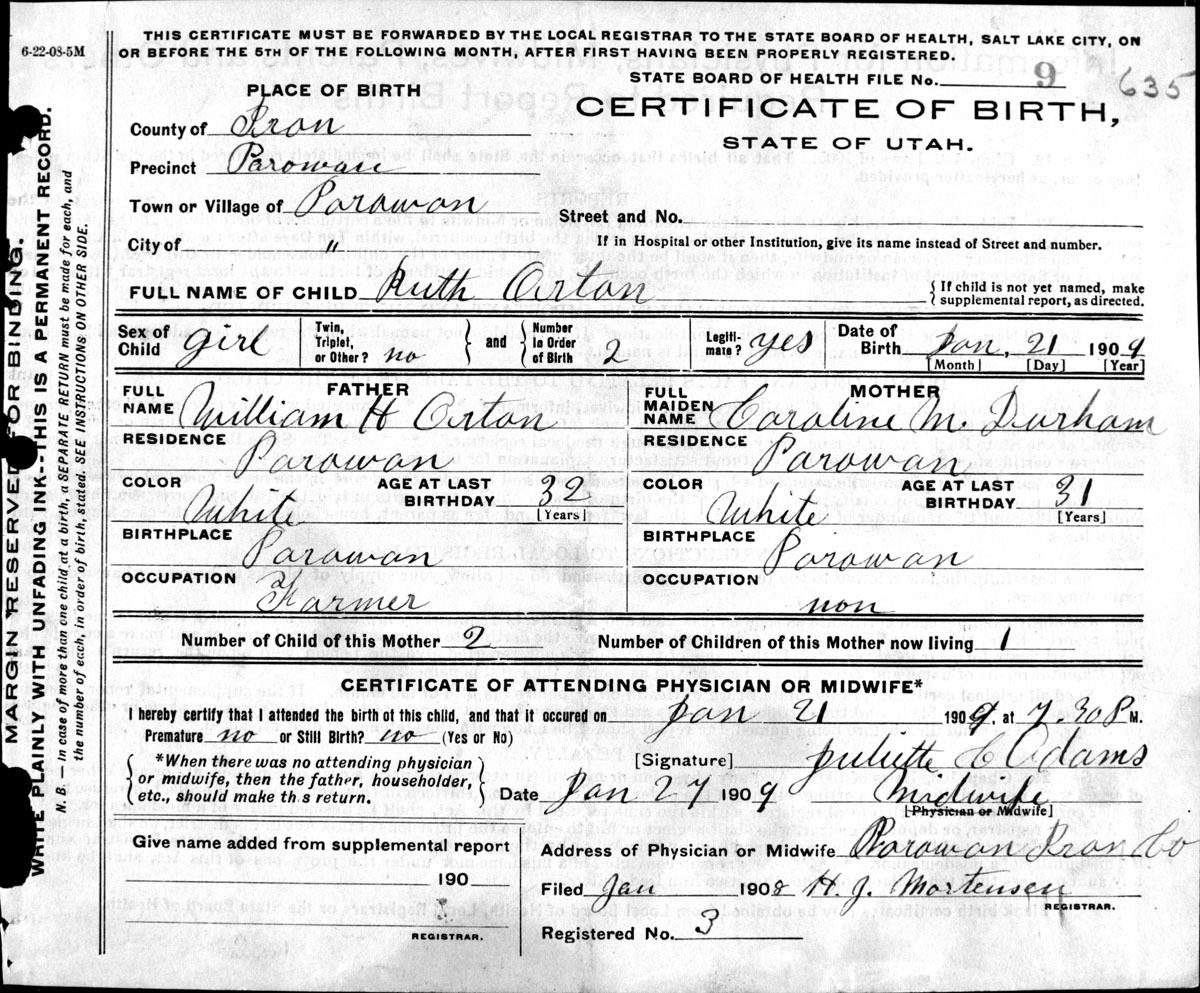 6-22-08-5M
THIS CERTIFICATE MUST BE FORWARDED BY THE LOCAL REGISTRAR TO THE STATE BOARD OF HEALTH, SALT LAKE CITY, ON
OR BEFORE THE 5TH OF THE FOLLOWING MONTH, AFTER FIRST HAVING BEEN PROPERLY REGISTERED.
STATE BOARD OF HEALTH FILE No. 9 635
PLACE OF BIRTH
CERTIFICATE OF BIRTH,
STATE OF UTAH.
County of Iron
Precinct Parowan
Town or Village of Parowan
Street and No.
City of "
If in Hospital or other Institution, give its name instead of Street and number.
FULL NAME OF CHILD Ruth Orton
{ If child is not yet named, make
supplemental report, as directed.
Sex of Child girl
Twin, Triplet, or Other? no } and { Number In Order of Birth 2
Legiti-mate? yes
Date of Birth Jan. 21 1909
[Month] [Day] [Year]
FATHER
FULL NAME William H Orton
RESIDENCE
Parowan
COLOR White
AGE AT LAST BIRTHDAY 32
[Years]
BIRTHPLACE
Parowan
OCCUPATION
Farmer
MOTHER
FULL MAIDEN NAME Caroline M. Durham
RESIDENCE
Parowan
COLOR White
AGE AT LAST BIRTHDAY 31
[Years]
BIRTHPLACE
Parowan
OCCUPATION
non
Number of Child of this Mother 2 Number of Children of this Mother now living 1
CERTIFICATE OF ATTENDING PHYSICIAN OR MIDWIFE*
I hereby certify that I attended the birth of this child, and that it occured on Jan 21 1909, at 7.30 P M.
Premature no or Still Birth? no (Yes or No)
{ *When there was no attending physician
or midwife, then the father, householder,
etc., should make this return. }
[Signature] Juliette C Adams
Date Jan 27 1909 Midwife
[Physician or Midwife]
Give name added from supplemental report
190
REGISTRAR.
Address of Physician or Midwife Parowan Iron Co
Filed Jan 1908 H. J. Mortensen
REGISTRAR.
Registered No. 3
MARGIN RESERVED FOR BINDING.
WRITE PLAINLY WITH UNFADING INK---THIS IS A PERMANENT RECORD.
N. B. — In case of more than one child at a birth, a SEPARATE RETURN must be made for each, and
the number of each, in order of birth, stated. SEE INSTRUCTIONS ON OTHER SIDE.